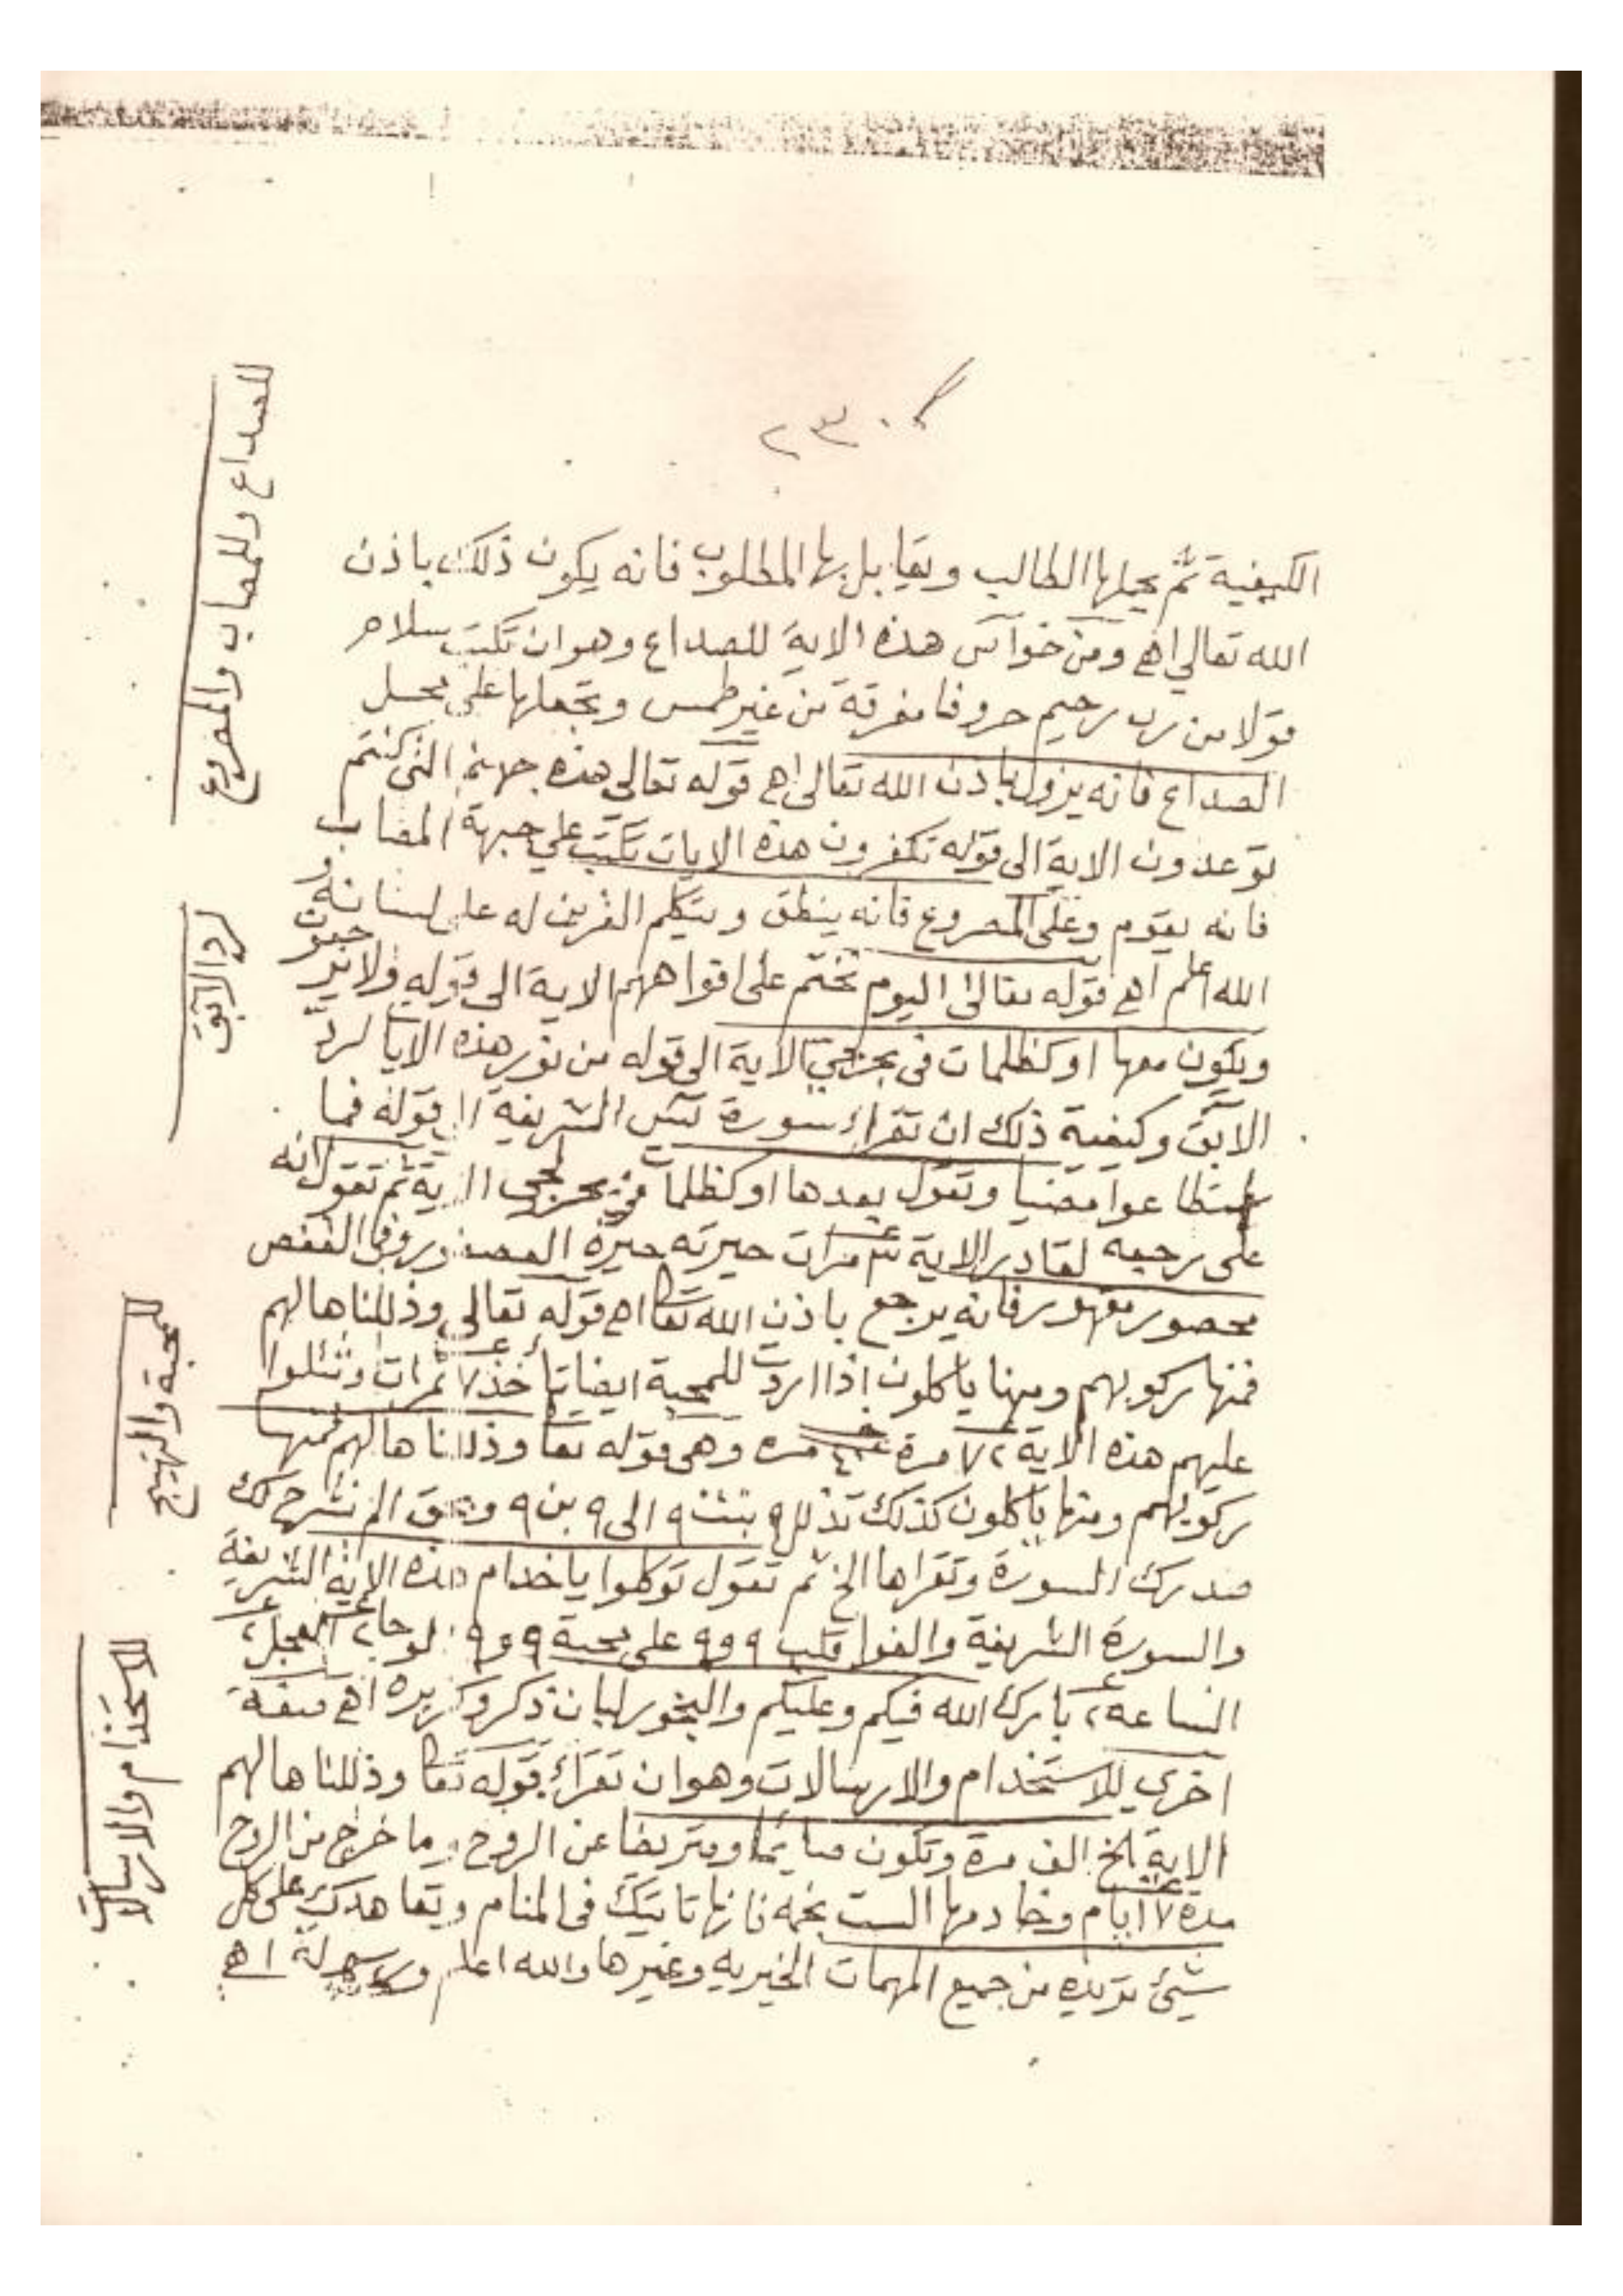 ٢٣٠
الكيفية ثم يحملها الطالب ويقابل بها المطلوب فانه يكون ذلك باذن
الله تعالى اهـ ومن خواص هذه الاية للصداع وهو ان تكتب سلام
قولا من رب رحيم حروفا مفرقة من غير طمس وتجعلها على محل
الصداع فانه يزول باذن الله تعالى اهـ قوله تعالى هذه جهنم التى كنتم
توعدون الاية الى قوله تكفرون هذه الايات تكتب على جبهة المصاب
فانه يقوم وعلى المصروع فانه ينطق ويتكلم القرين له على لسانه و
الله اعلم اهـ قوله تعالى اليوم نختم على افواههم الاية الى قوله ولا يرجعون
ويكون معها او كظلمات فى بحر لجي الاية الى قوله من نور هذه الايات لرد
الابق وكيفية ذلك ان تقراء سورة يس الشريفة الى قوله فما
استطاعوا مضيا وتقول بعدها او كظلمات في بحر لجى الاية ثم تقول انه
على رجعه لقادر الاية ٣ مرات حيرته حيرة العصفور وفى القفص
محصور مقهور فانه يرجع باذن الله تعا اهـ قوله تعالى وذللناها لهم
فمنها ركوبهم ومنها ياكلون اذا اردت للمحبة ايضا تاخذ ٧ تمرات وتتلوا
عليهم هذه الاية ٧٢ مرة مره وهى قوله تعا وذللناها لهم فمنها
ركوبهم ومنها ياكلون كذلك تذلل ٩ بنت ٩ الى ٩ بن ٩ وبحق الم نشرح لك
صدرك السورة وتقراها الخ ثم تقول توكلوا يا خدام هذه الاية الشريفة
والسورة الشريفة والقوا قلب ٩ و٩ على محبة ٩ و٩ الوحا ٢ العجل ٢
الساعه ٢ بارك الله فيكم وعليكم والبخور لبان ذكر وكزبره اهـ صفة
اخرى للاستخدام والارسالات وهو ان تقراء قوله تعا وذللناها لهم
الاية الخ الف مرة وتكون صايما ومتريضا عن الروح وما خرج من الروح
مدة ٧ ايام وخادمها الست نجمه فانها تاتيك فى المنام وتعاهدك على كل
شيئ تريده من جميع المهمات الخيريه وغيرها والله اعلم ورسوله اهـ
للصداع وللمصاب والمصروع
لرد الابق
للمحبة والتهييج
للاستخدام والارسالات